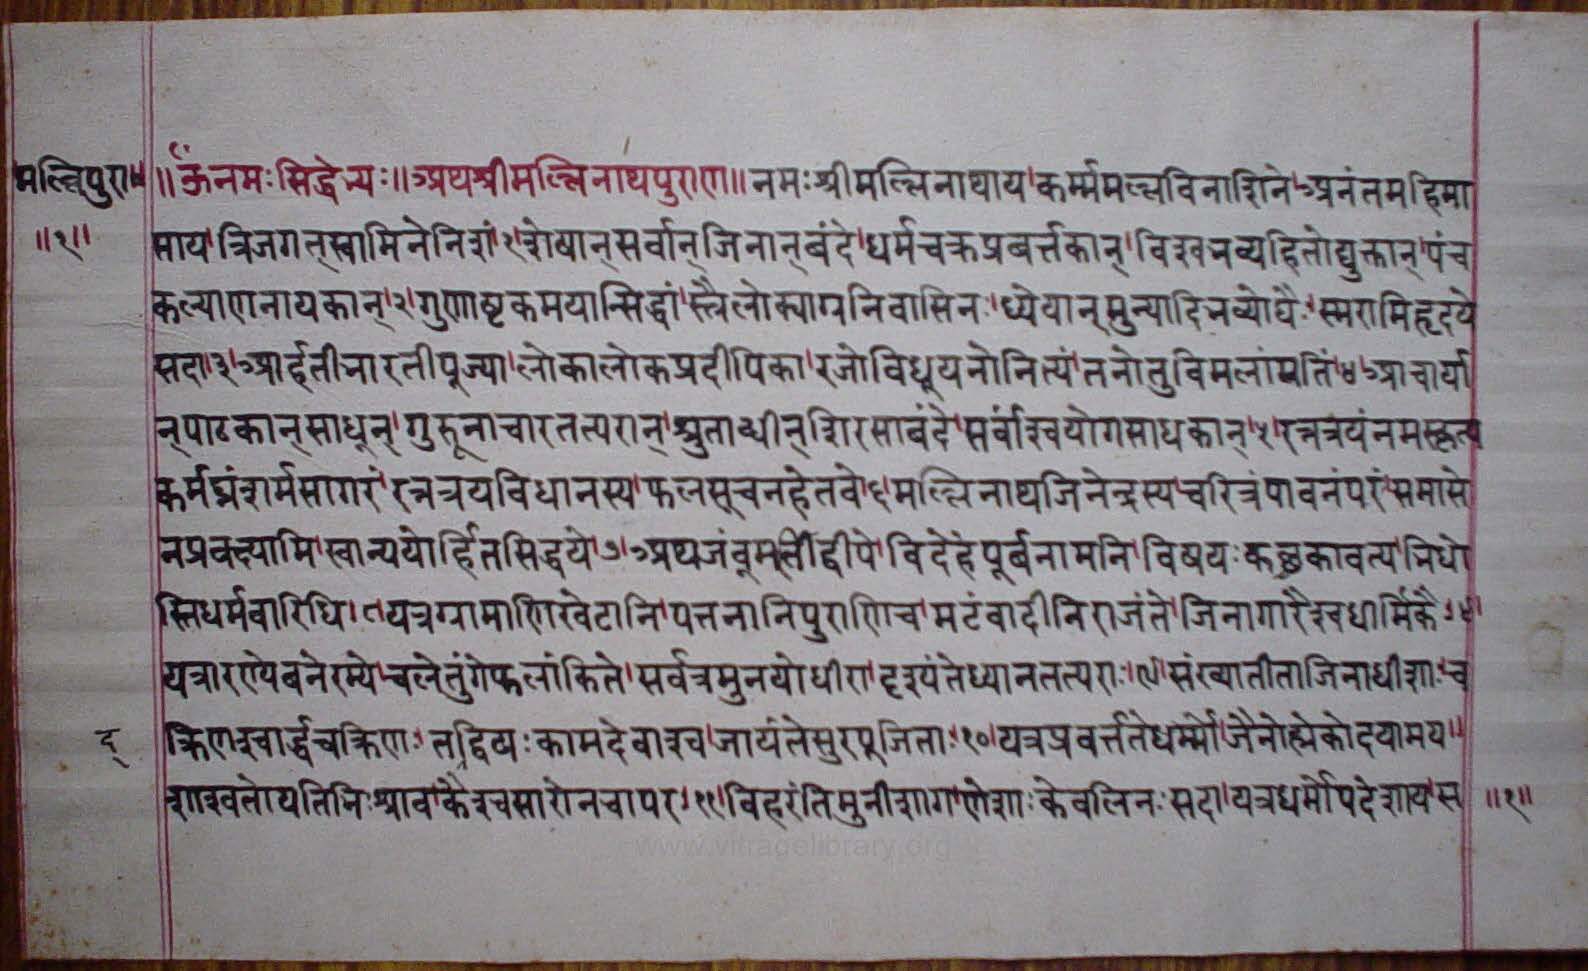 मल्लिपुरा॰ ॥ ॐनमःसिद्धेभ्यः॥ अथश्रीमल्लिनाथपुराण॥ नमःश्रीमल्लिनाथाय।कर्म्ममल्लविनाशिने।अनंतमहिमा
॥१॥ साय।त्रिजगत्स्वामिनेनिशं।१।शेषान्सर्वान्जिनान्बंदे।धर्मचक्रप्रबर्त्तकान्।विश्वभव्यहितोद्युक्तान्।पंच
कल्याणनायकान्।२।गुणाष्टकमयान्सिद्धां।स्त्रैलोक्याग्रनिवासिनः।ध्येयान्मुन्यादिभव्योघैः।स्मरामिहृदये
सदा।३।आर्हतीभारतीपूज्या।लोकालोकप्रदीपिका।रजोविधूयनोनित्यं।तनोतुविमलांमतिं।४।आचार्या
न्पाठकान्साधून्।गुरूनाचारतत्परान्।श्रुताब्धीन्शिरसाबंदे।सर्वांश्चयोगसाधकान्।५।रत्नत्रयंनमस्कृत्य
कर्मघ्नंशर्मसागरं।रत्नत्रयविधानस्य।फलसूचनहेतवे।६।मल्लिनाथजिनेन्द्रस्य।चरित्रंपावनंपरं।समासे
नप्रवक्ष्यामि।स्वान्ययोर्हितसिद्धये।७।अथजंबूमतिद्वीपे।विदेहेपूर्बनामनि।विषयःकछकावत्य।भिधो
स्तिधर्मवारिधि।८।यत्रग्रामाणिखेटानि।पत्तनानिपुराणिच।मटंवादीनिराजंते।जिनागारैश्चधार्मिकैः।
यत्रारण्येबनेरम्ये।चलेतुंगेफलांकिते।सर्वत्रमुनयोधीरा।दृश्यंतेध्यानतत्पराः।९।संख्यातीताजिनाधीशाः।च
द् क्रिणश्चार्द्धचक्रिणः।तद्द्विषःकामदेवाश्च।जायंतेसुरपूजिताः।१०।यत्रप्रवर्त्ततेधर्म्मो।जैनोह्येकोदयामय।
शाश्वतोयतिभिःश्रावकैश्चसारोनचापर।११।विहरंतिमुनीशागणेशाःकेवलिनःसदा।यत्रधर्मोपदेशाय।स ॥१॥
www.viragelibrary.org